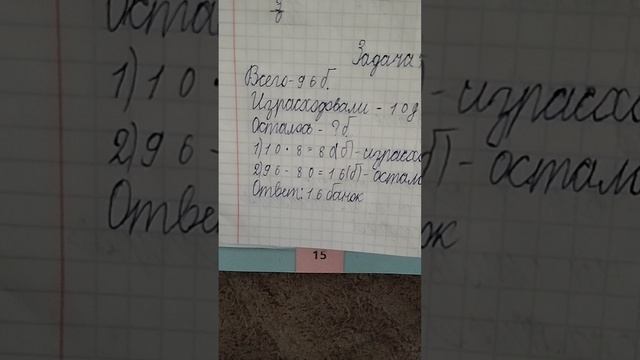 Задача
Всего - 96 б.
Израсходовали - 10 д
Осталось - ? б.
1) 10 · 8 = 80(б) - израсхо
2) 96 - 80 = 16(б) - остало
Ответ: 16 банок
15